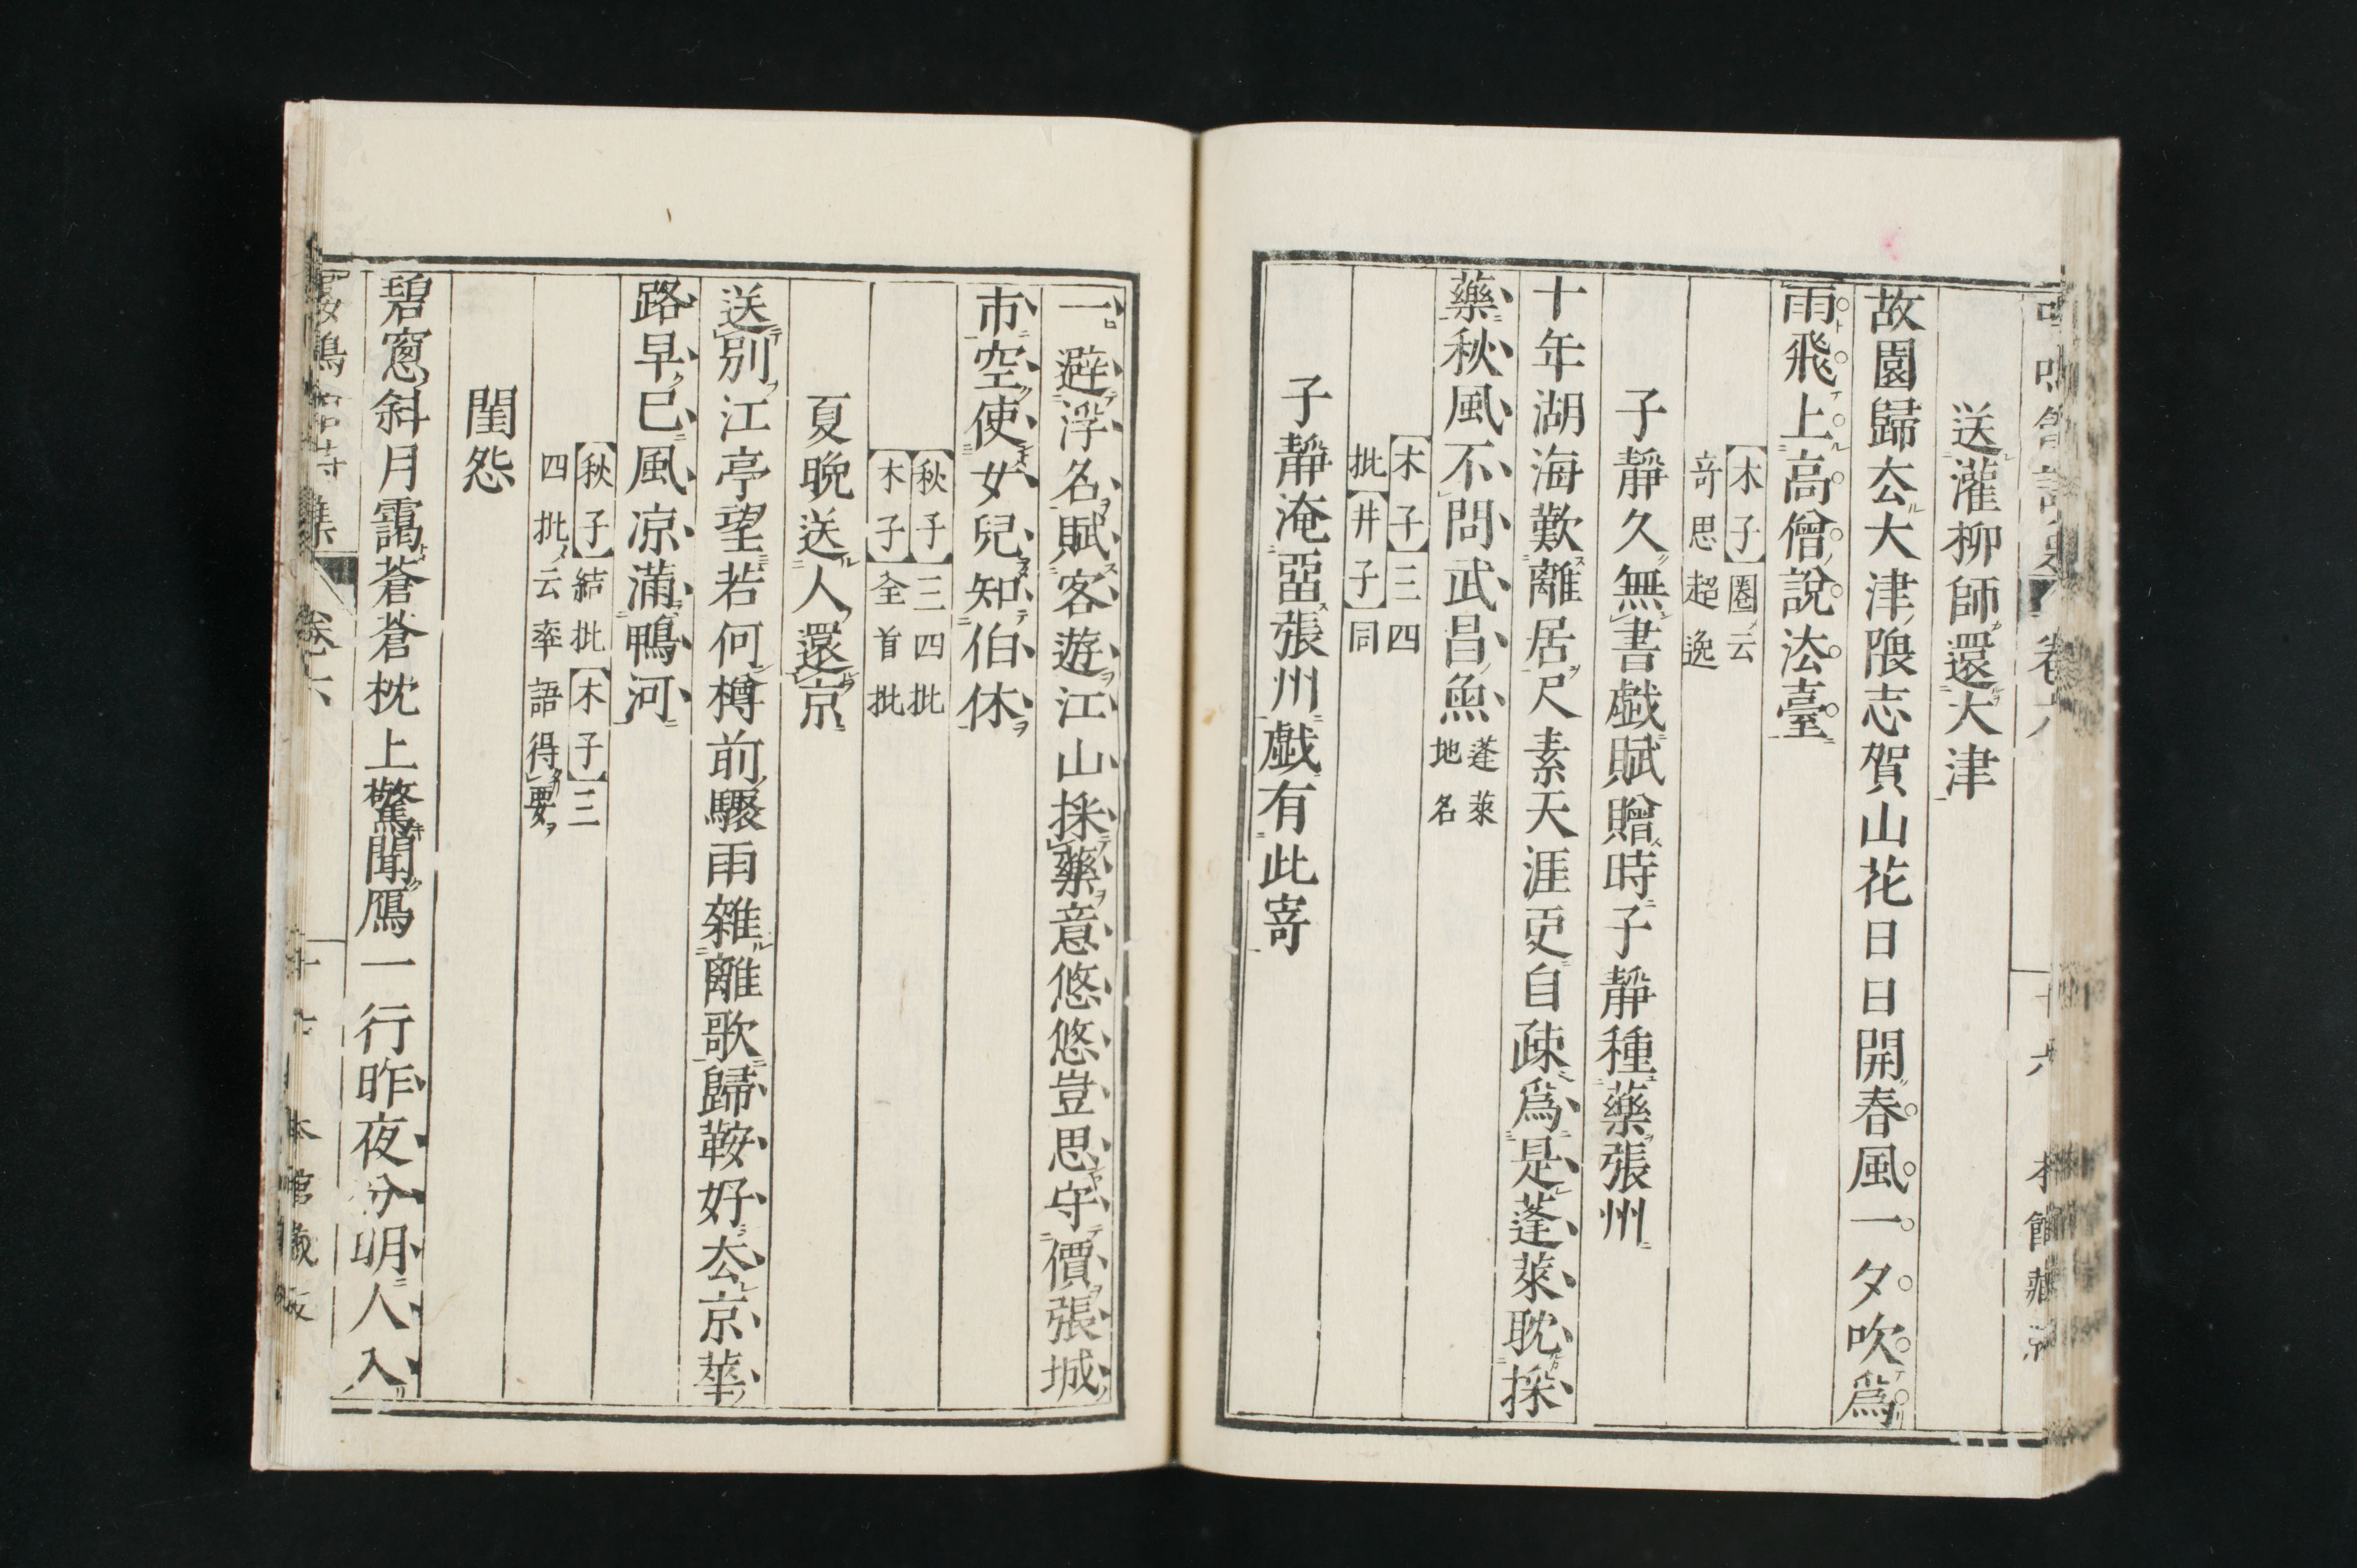 送灌柳師還大津
故園歸厺大津隈志賀山花日日開春風一夕吹爲
雨飛上高僧說法臺
【木子】圈云
奇思超逸
子靜久無書戯賦贈時子靜種藥張州
十年湖海歎離居尺素天涯更自疎爲是蓬萊耽採
藥秋風不問武昌魚
蓬萊
地名
【木子】三四
批【井子】同
子靜淹畱張州戯有此寄
一避浮名賦客遊江山採藥意悠悠豈思守價張城
市空使女兒知伯休
【秋子】三四批
【木子】全首批
夏晚送人還京
送別江亭望若何樽前驟雨雜離歌歸鞍好厺京華
路早已風凉滿鴨河
【秋子】結批【木子】三
四批云率語得要
閨怨
碧窻斜月靄蒼蒼枕上驚聞鴈一行昨夜分明人入
卷六